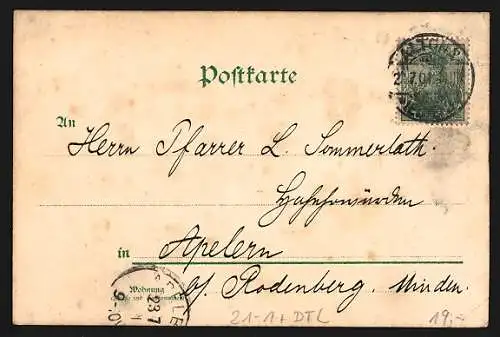 Postkarte
An
Herrn Pfarrer L. Sommerlath.
Hochehrwürden
in Apelern
Wohnung
b/ Rodenberg. Minden.
21-1+DTL
19,-